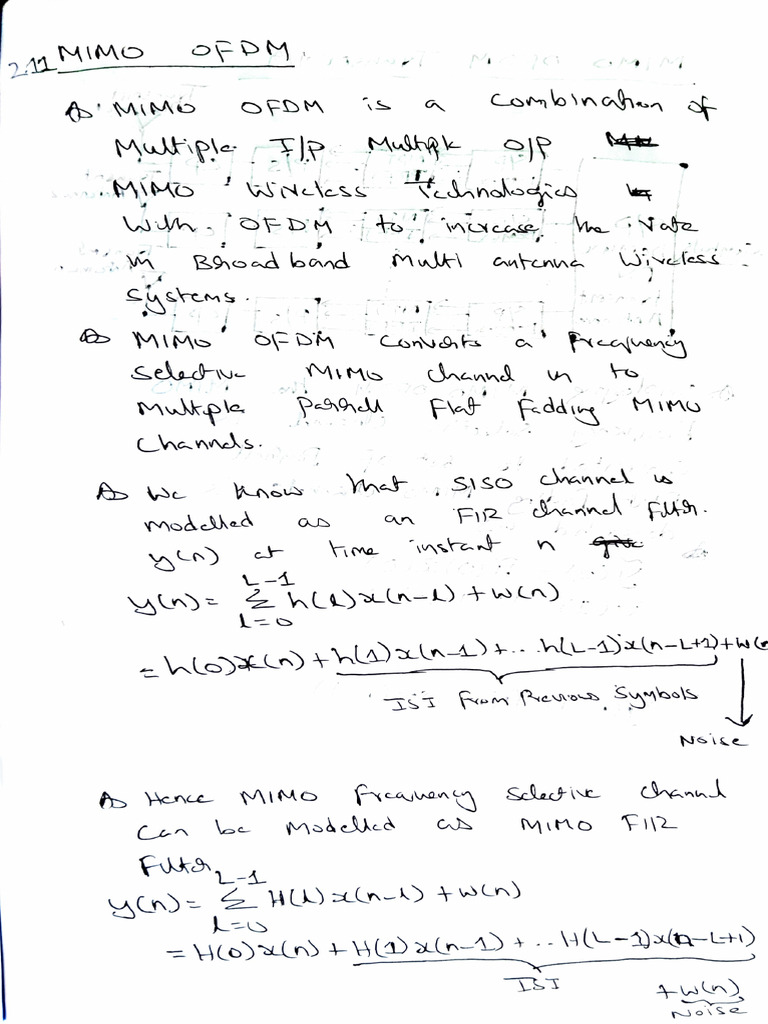 2.11 MIMO OFDM
MIMO OFDM is a Combination of
Multiple I/P Multiple O/P
MIMO Wireless Technologies
With OFDM to increase the rate
in Broad band Multi antenna Wireless
systems.
MIMO OFDM Converts a Frequency
Selective MIMO channel in to
Multiple Parrell Flat Fadding MIMO
Channels.
We Know that SISO channel is
modelled as an FIR channel Filter.
y(n) at time instant n
y(n) = Σ_{l=0}^{L-1} h(l)x(n-l) + w(n)
= h(0)x(n) + h(1)x(n-1) + .. h(L-1)x(n-L+1) + w(n
ISI From Previous Symbols
Noise
Hence MIMO Frequency Selective Channel
Can be Modelled as MIMO FIR
Filter
y(n) = Σ_{l=0}^{L-1} H(l)x(n-l) + w(n)
= H(0)x(n) + H(1)x(n-1) + .. H(L-1)x(n-L+1)
ISI + w(n)
Noise